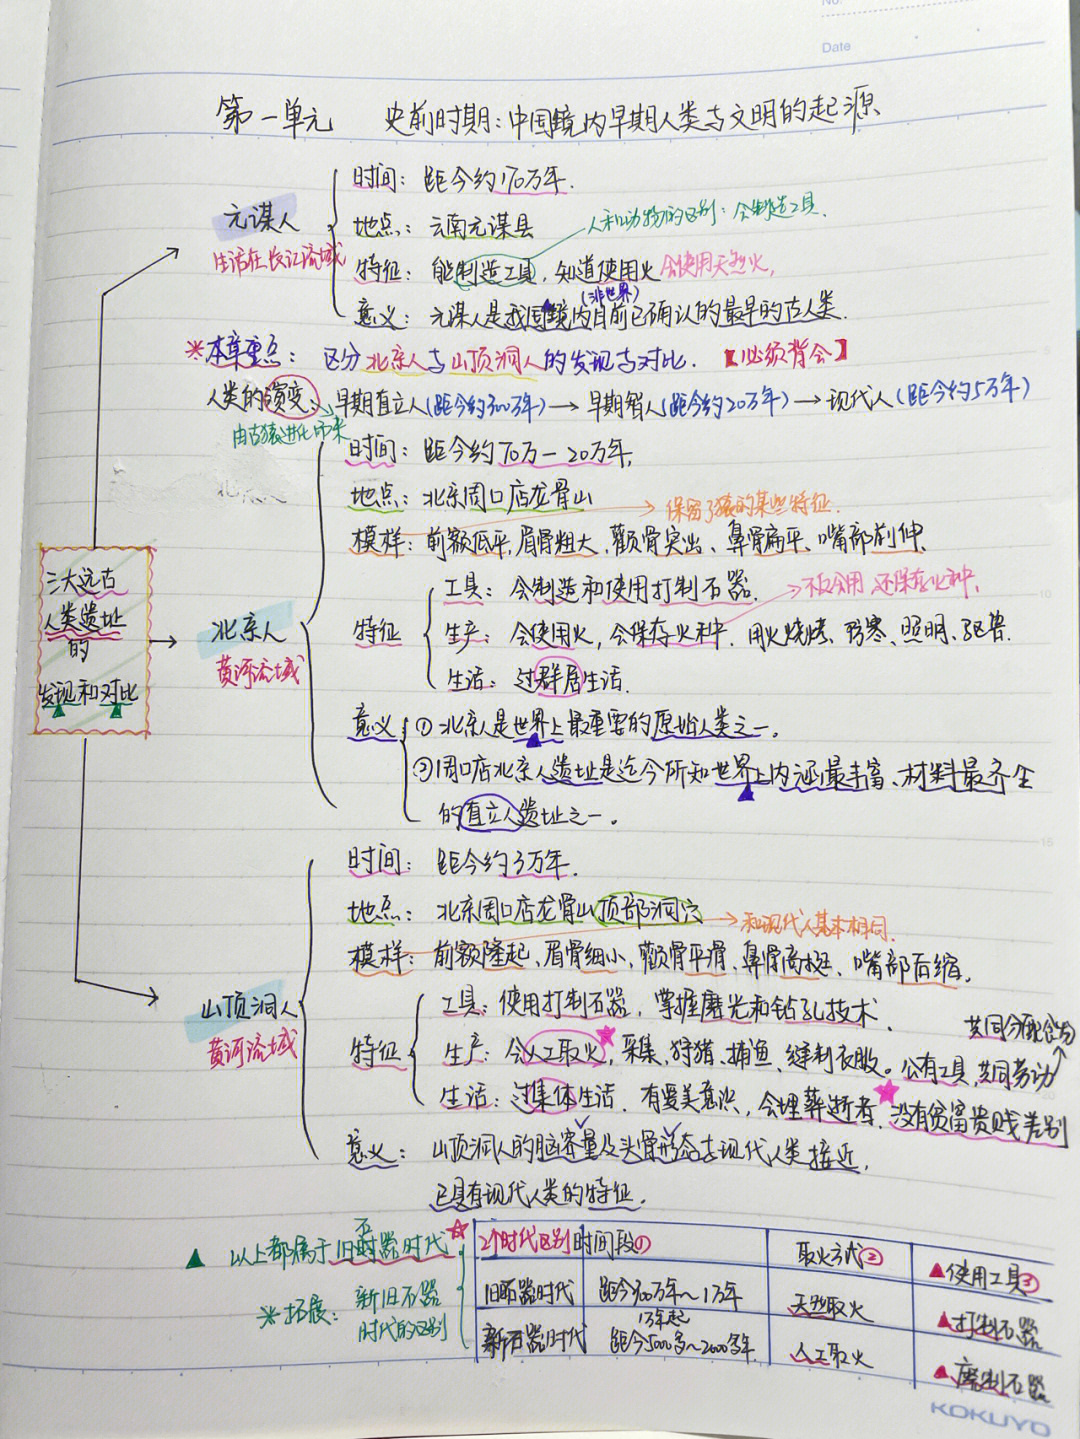 No.
Date
第一单元 史前时期：中国镜内早期人类与文明的起源
时间：距今约170万年.
元谋人
地点：云南元谋县
人和动物的区别：会制造工具.
生活在长江流域
特征：能制造工具，知道使用火 会使用天然火,
(非世界)
意义：元谋人是我国镜内目前已确认的最早的古人类.
*本章重点：区分北京人与山顶洞人的发现与对比.【必须背会】
人类的演变：早期直立人(距今约300万年)→早期智人(距今约20万年)→现代人(距今约5万年)
由古猿进化而来
时间：距今约70万—20万年,
地点：北京周口店龙骨山
保留了猿的某些特征.
模样：前额低平,眉骨粗大、颧骨突出、鼻骨扁平、嘴部前伸、
三大远古
人类遗址
的
发现和对比
工具：会制造和使用打制石器.
不仅会用,还保存火种,
北京人
黄河流域
特征
生产：会使用火，会保存火种.用火烧烤、防寒、照明、驱兽.
生活：过群居生活.
意义 ①北京人是世界上最重要的原始人类之一。
②周口店北京人遗址是迄今所知世界上内涵最丰富、材料最齐全
的直立人遗址之一。
时间：距今约3万年.
地点：北京周口店龙骨山顶部洞穴
和现代人基本相同.
模样：前额隆起,眉骨细小,颧骨平滑、鼻骨高挺、嘴部后缩.
山顶洞人
黄河流域
工具：使用打制石器，掌握磨光和钻孔技术.
共同分配食物
特征
生产：会人工取火，采集、狩猎、捕鱼、缝制衣服。公有工具,共同劳动
生活：过集体生活.有爱美意识，会埋葬逝者.没有贫富贵贱差别
意义：山顶洞人的脑容量及头骨形态与现代人类接近,
已具有现代人类的特征.
▲以上都属于旧石器时代
*拓展：新旧石器
时代的区别
2个时代区别 时间段① 取火方式② ▲使用工具③
旧石器时代 距今300万年~1万年 天然取火 ▲打制石器
1万年起
新石器时代 距今5000多~2000多年 人工取火 ▲磨制石器
KOKUYO